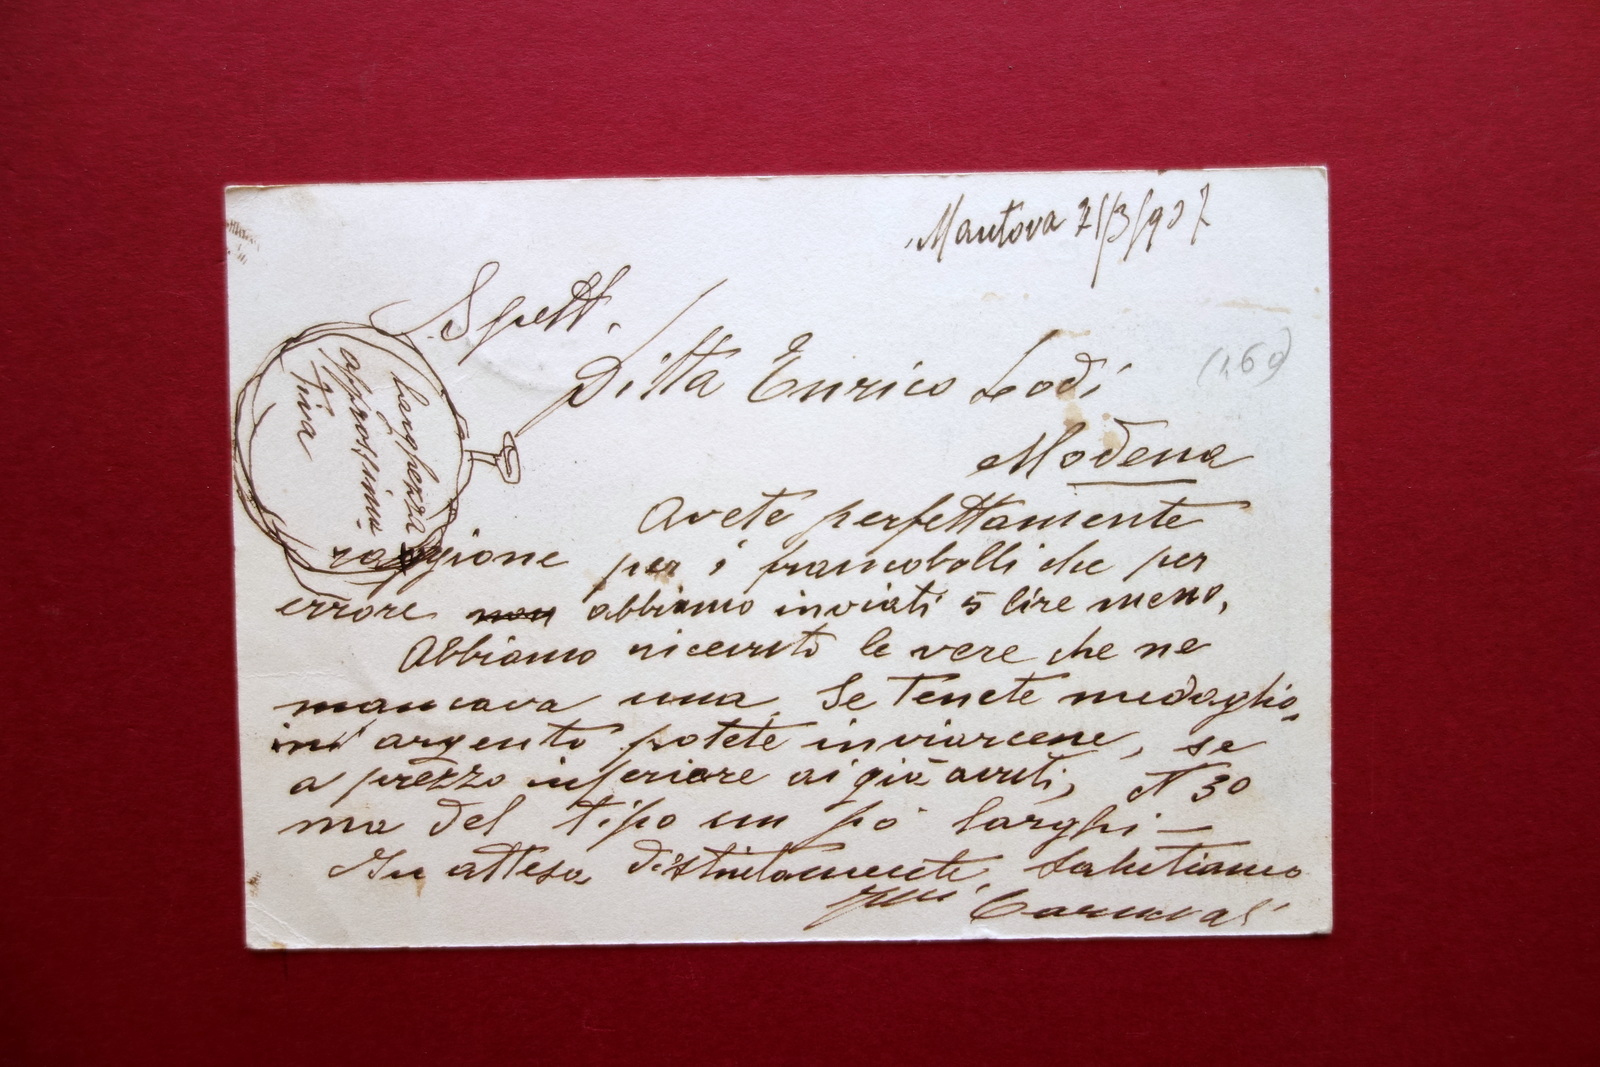 Mantova 21/3/907
Spett.
Ditta Enrico Lodi
Modena
Larghezza
approssima-
tiva
(169)
Avete perfettamente
raggione per i francobolli che per
errore non abbiamo inviati 5 lire meno,
Abbiamo ricevuto le vere che ne
mancava una. Se tenete medaglio-
ini argento potete inviarcene, se
a prezzo inferiore ai già avuti, N 30
ma del tipo un po' larghi —
In attesa distintamente salutiamo
F.lli